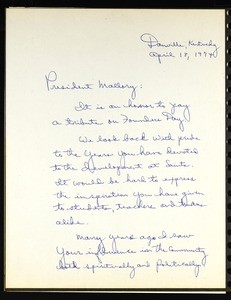 Danville, Kentucky
April 18, 1974
President Mallory:
It is an honor to pay
a tribute on Founders Day.
We look back with pride
to the years you have devoted
to the development at Sante.
It would be hard to express
the inspiration you have given
to students, teachers and
alike.
Many years ago I saw
your influence in the community
both spiritually and politically.